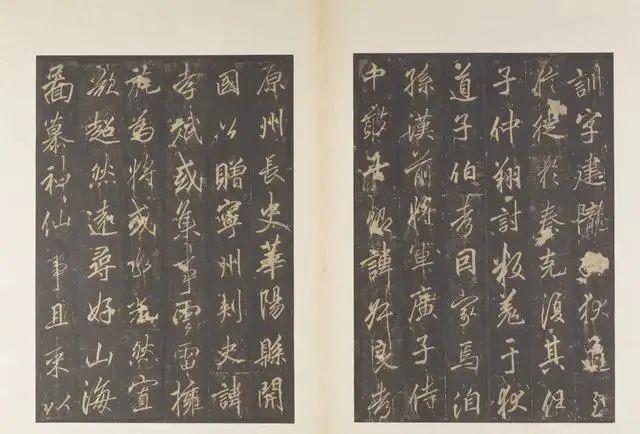 訓字建隴狄道至
於徙於秦克復其任
子仲翔討叛羌于狄
道子伯考因家焉洎
孫漢前將軍廣子侍
中敢諱叔良考
原州長史華陽縣開
國公贈寧州刺史諱
孝斌或集事雲雷擁
旄為將或然宦
欲超然遠尋好山海
圖慕神仙事且束以